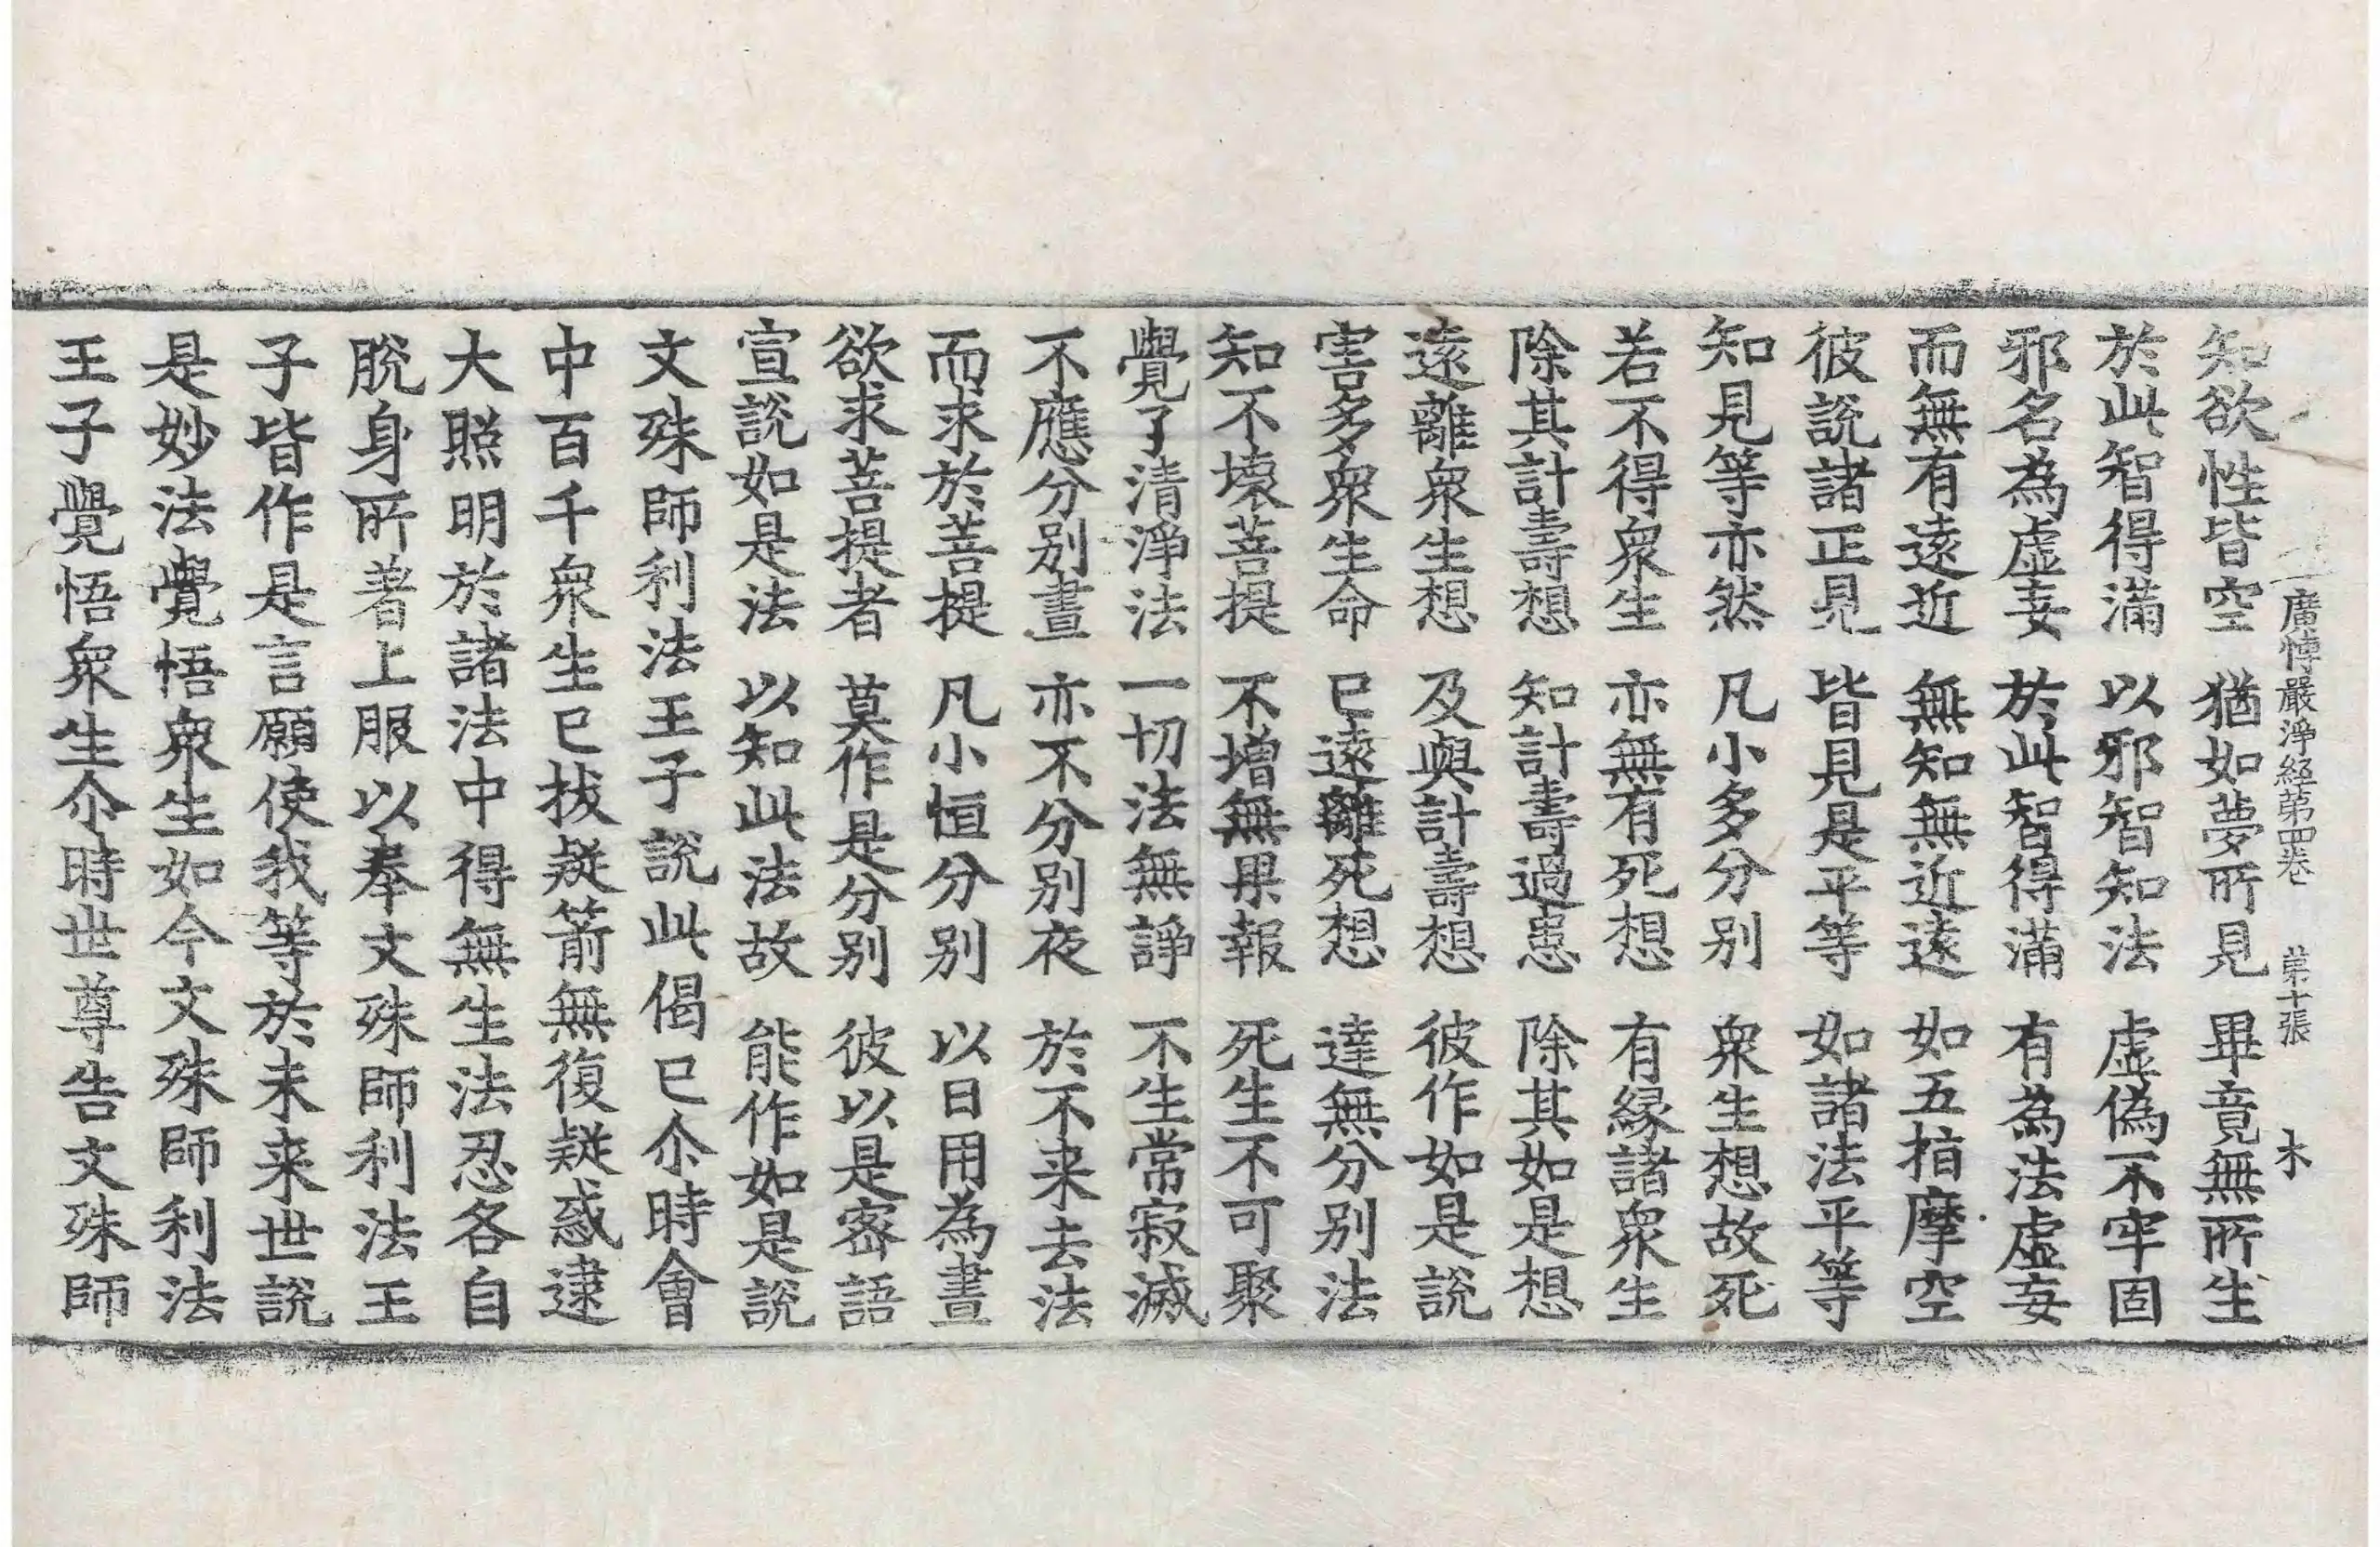 廣博嚴淨経第四卷 第十張 木
知欲性皆空 猶如夢所見 畢竟無所生
於此智得滿 以邪智知法 虛偽不牢固
邪名為虛妄 於此智得滿 有為法虛妄
而無有遠近 無知無近遠 如五指摩空
彼說諸正見 皆見是平等 如諸法平等
知見等亦然 凡小多分別 衆生想故死
若不得衆生 亦無有死想 有緣諸衆生
除其計壽想 知計壽過患 除其如是想
遠離衆生想 及與計壽想 彼作如是說
害多衆生命 已遠離死想 達無分別法
知不壞菩提 不增無果報 死生不可聚
覺了清淨法 一切法無諍 不生常寂滅
不應分別晝 亦不分別夜 於不来去法
而求於菩提 凡小恒分別 以日用為晝
欲求菩提者 莫作是分別 彼以是密語
宣說如是法 以知此法故 能作如是說
文殊師利法王子說此偈已尒時會
中百千衆生已拔疑箭無復疑惑逮
大照明於諸法中得無生法忍各自
脫身所著上服以奉文殊師利法王
子皆作是言願使我等於未来世說
是妙法覺悟衆生如今文殊師利法
王子覺悟衆生尒時世尊告文殊師